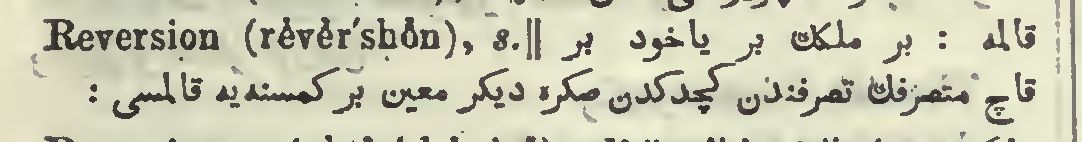 Reversion (rĕvĕr′shŏn), s.‖ قالمه : بر ملكك بر ياخود بر
قاچ متصرفك تصرفندن كچدكدن صكره ديكر معين بر كمسنه‌يه قالمسی :